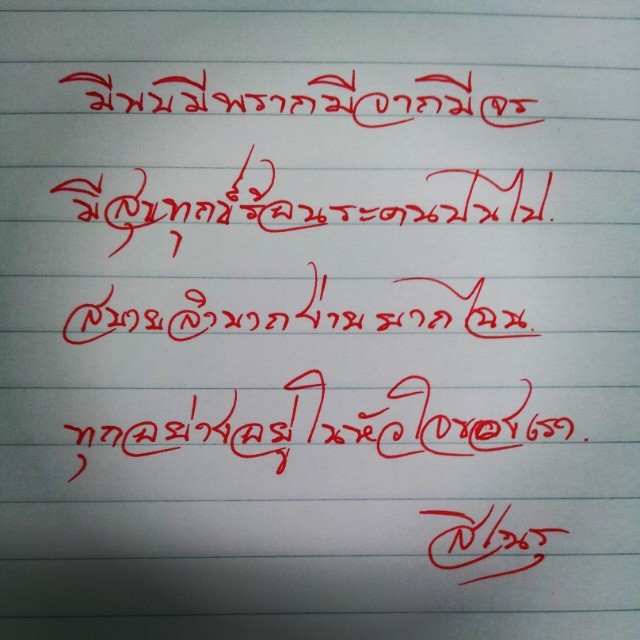 มีพบมีพรากมีจากมีจร
มีสุขทุกข์ร้อนระคนปนไป.
สบายลำบากง่ายยากไฉน.
ทุกอย่างอยู่ในหัวใจของเรา.
สิเนรุ